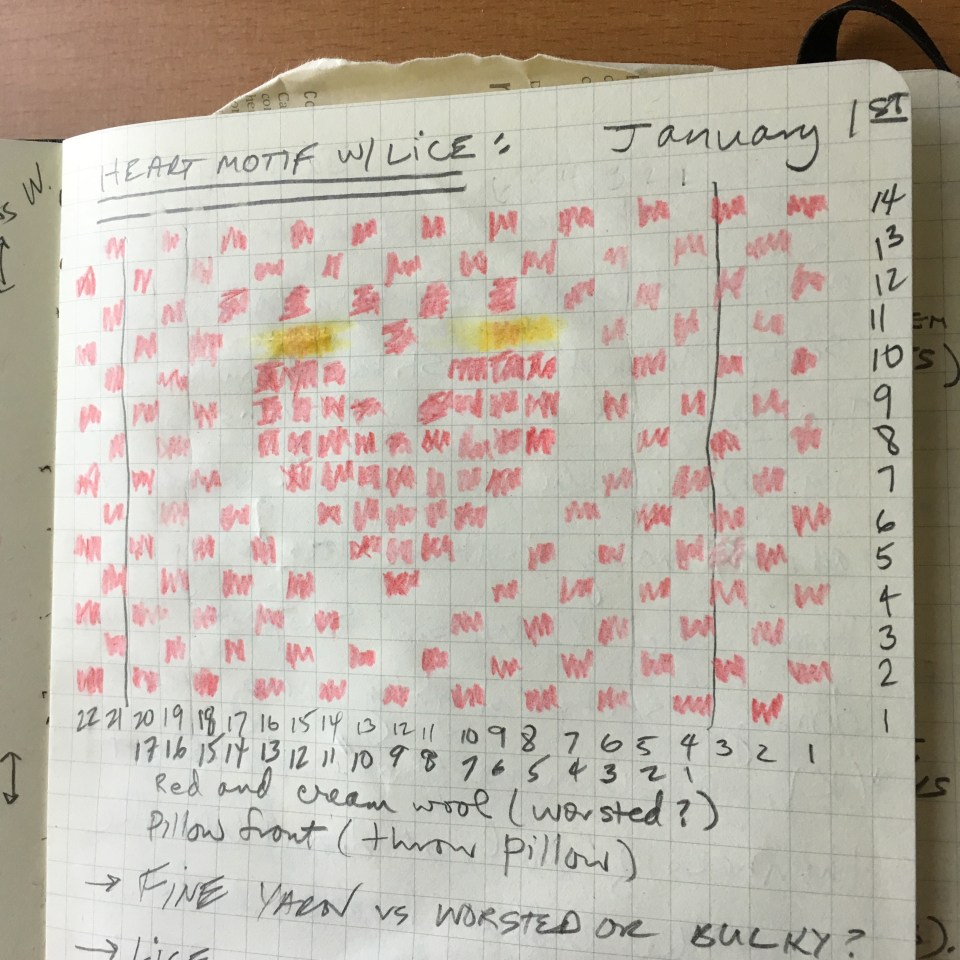 HEART MOTIF W/LICE:
January 1ST
14
13
12
11
10
9
8
7
6
5
4
3
2
1
22 21 20 19 18 17 16 15 14 13 12 11 10 9 8 7 6 5 4 3 2 1
17 16 15 14 13 12 11 10 9 8 7 6 5 4 3 2 1
Red and cream wool (worsted?)
Pillow front (throw pillow)
→ FINE YARN VS WORSTED OR BULKY?
→ LICE